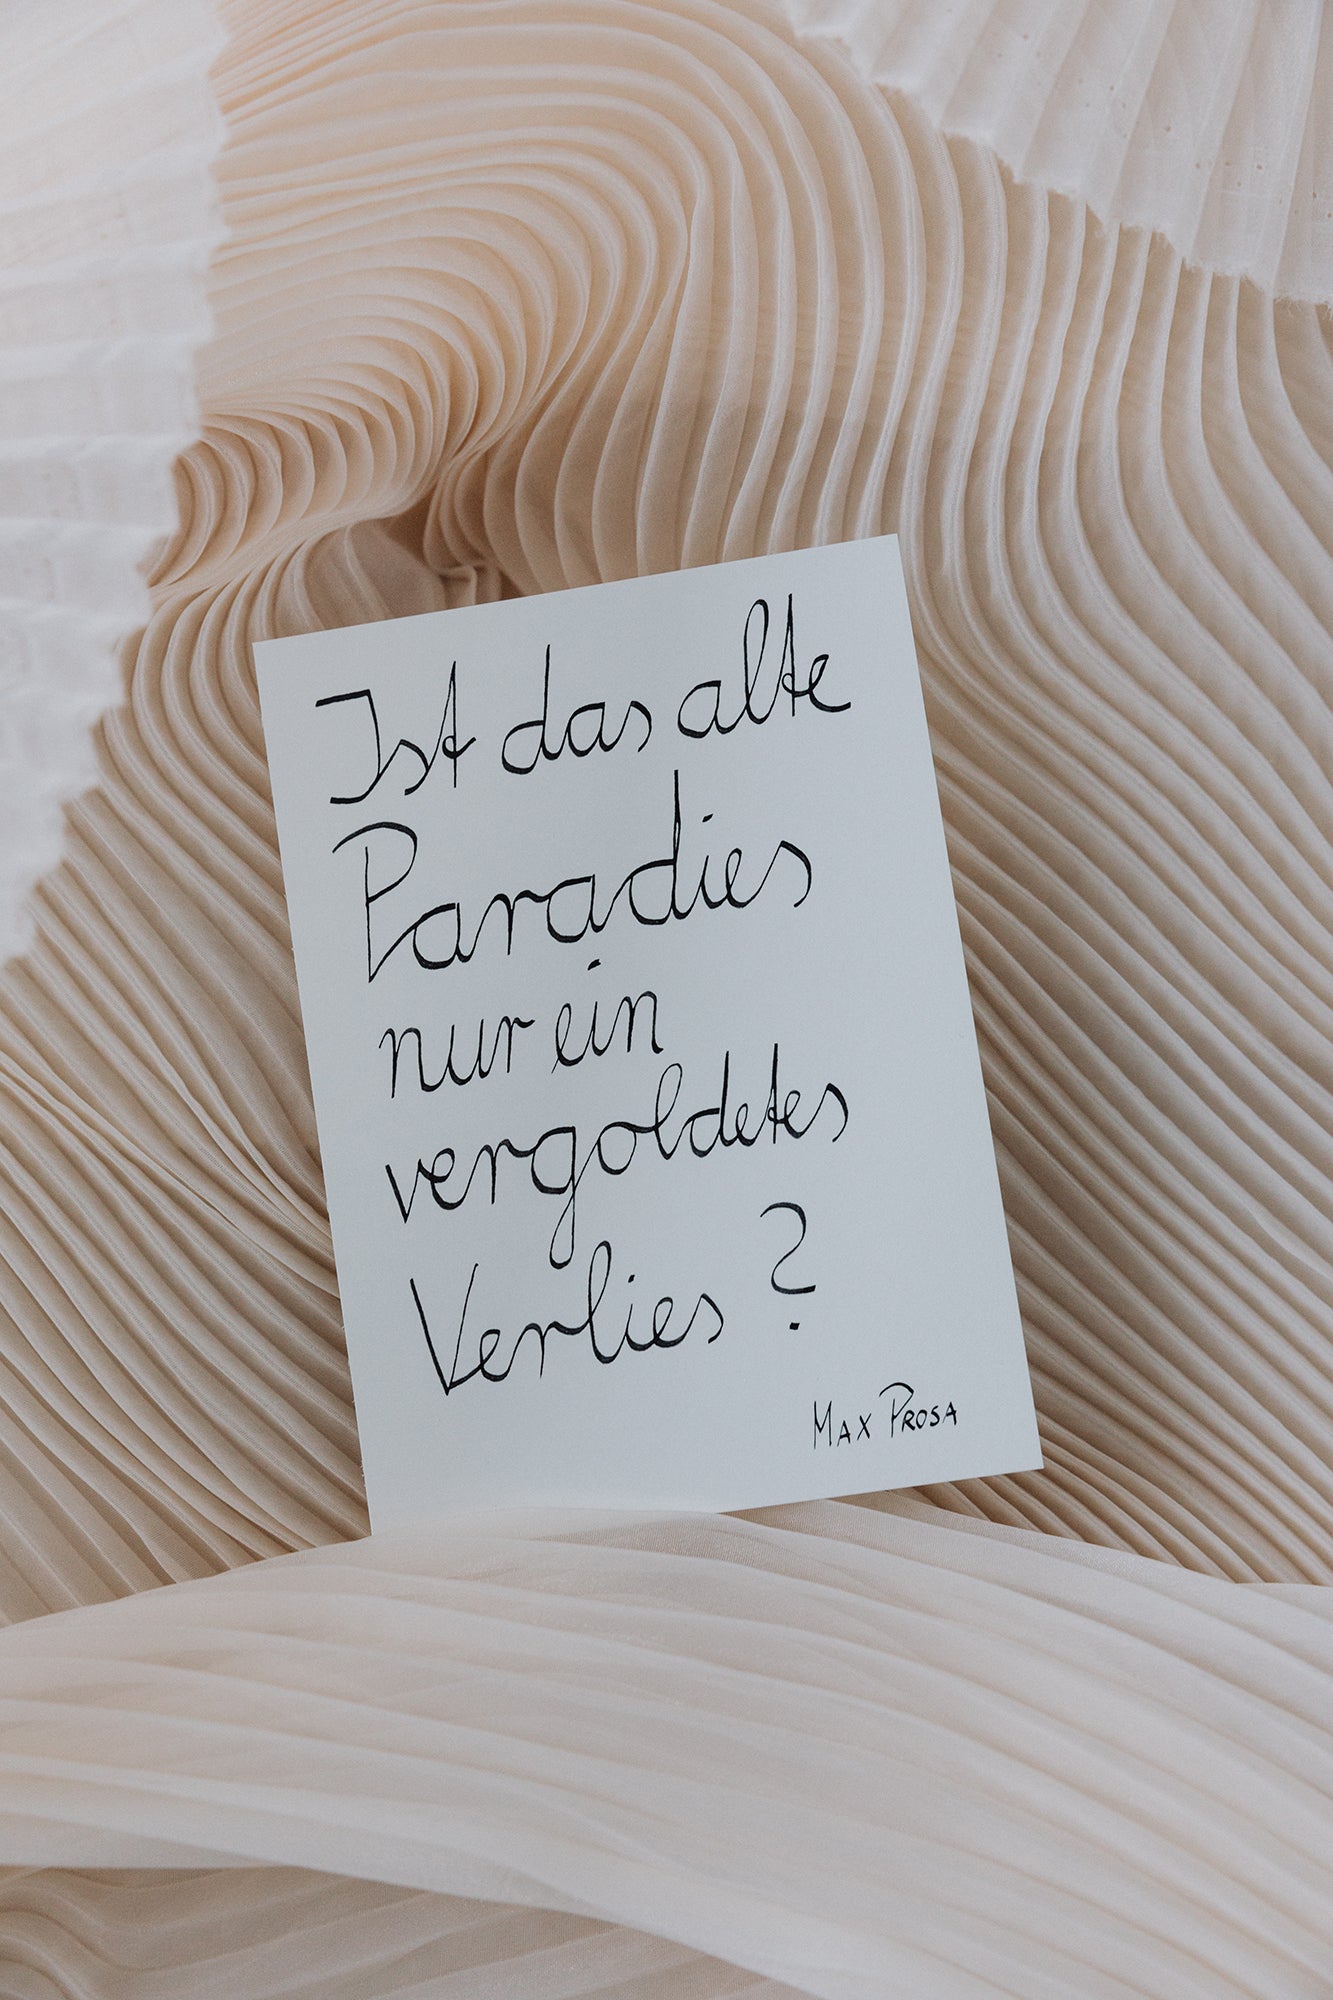 Ist das alte
Paradies
nur ein
vergoldetes
Verlies ?
MAX PROSA